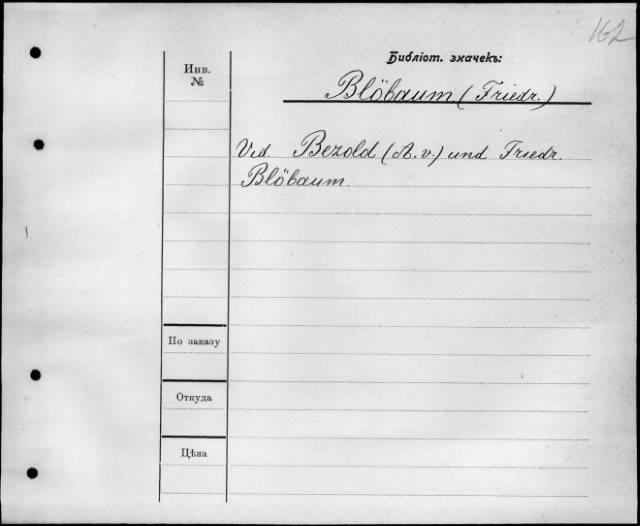 162
Библіот. значекъ:
Инв.
№
Blöbaum (Friedr.)
Vid. Bezold (A. v.) und Friedr.
Blöbaum.
По заказу
Откуда
Цѣна